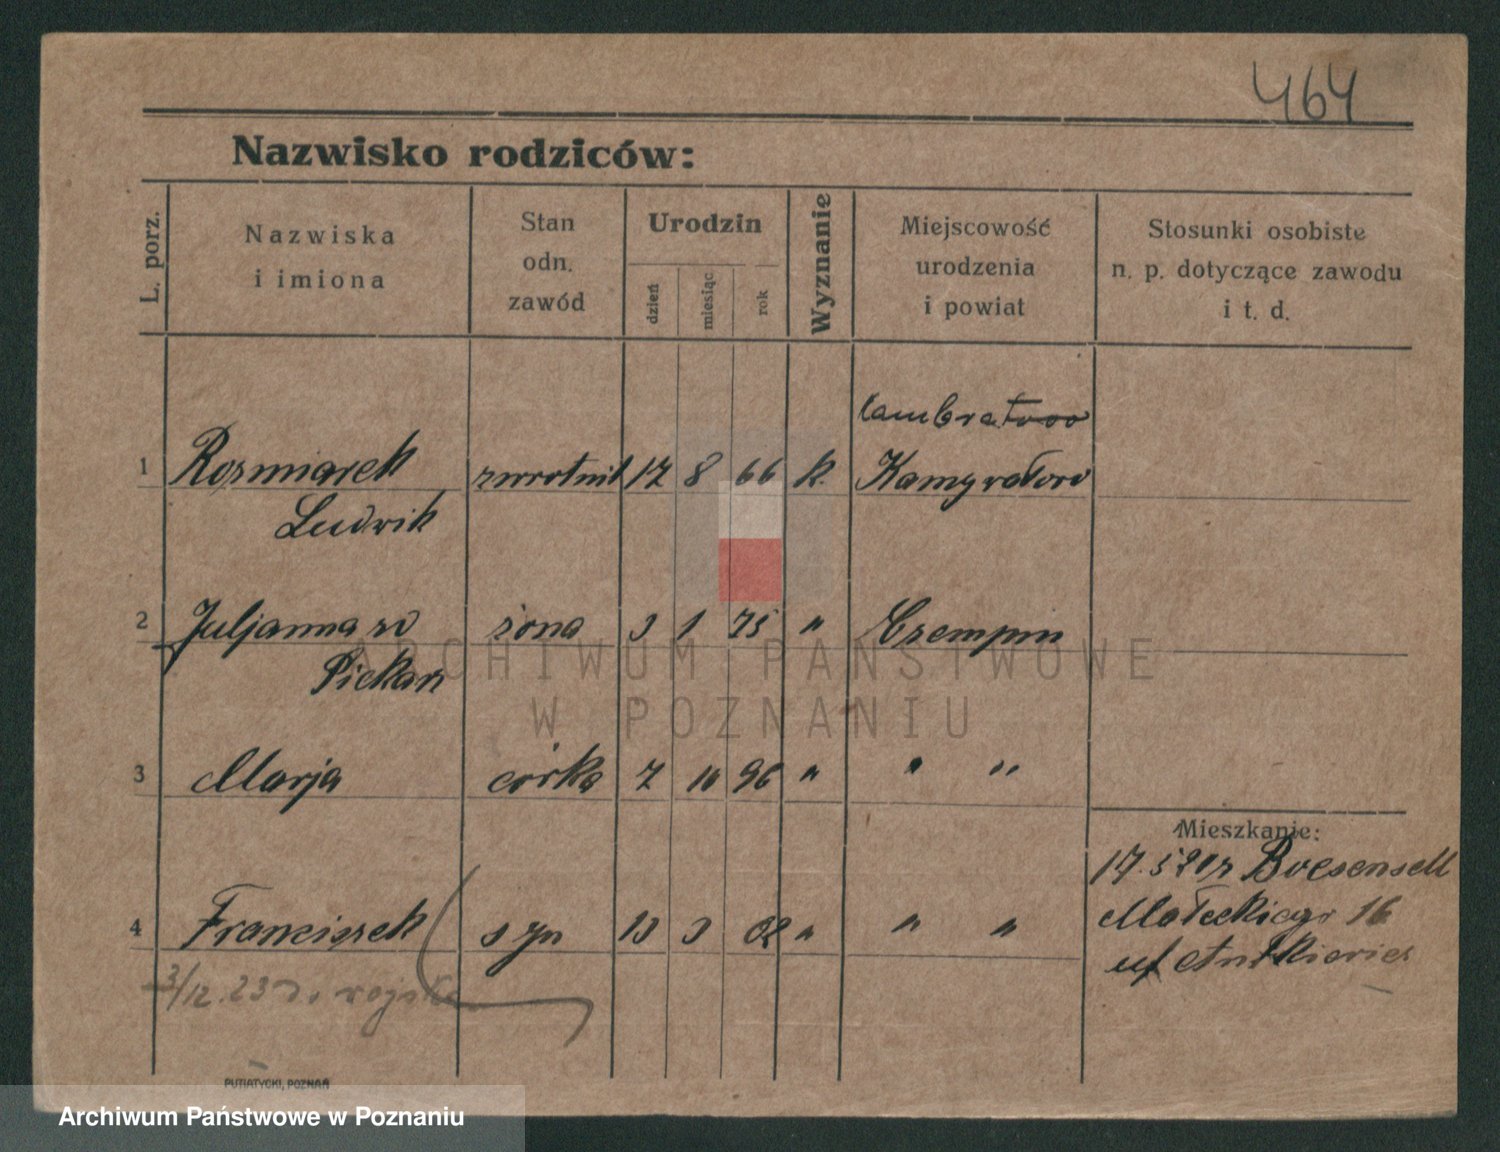 464
Nazwisko rodziców:
L. porz.
Nazwiska
i imiona
Stan
odn.
zawód
Urodzin
dzień
miesiąc
rok
Wyznanie
Miejscowość
urodzenia
i powiat
Stosunki osobiste
n. p. dotyczące zawodu
i t. d.
1 Rozmiarek zwrotnik 17 8 66 k. Kamyratowo
Ludwik
2 Juljanna w żona 3 1 75 " Czempin
Piekar
3 Marja córka 7 10 96 " " "
Mieszkanie:
17.5 20 z
4 Franciszek syn 13 3 02 " " "
Małeckiego 16
3/12.23 do wojska
PUTIATYCKI, POZNAŃ
ARCHIWUM PAŃSTWOWE
W POZNANIU
Archiwum Państwowe w Poznaniu